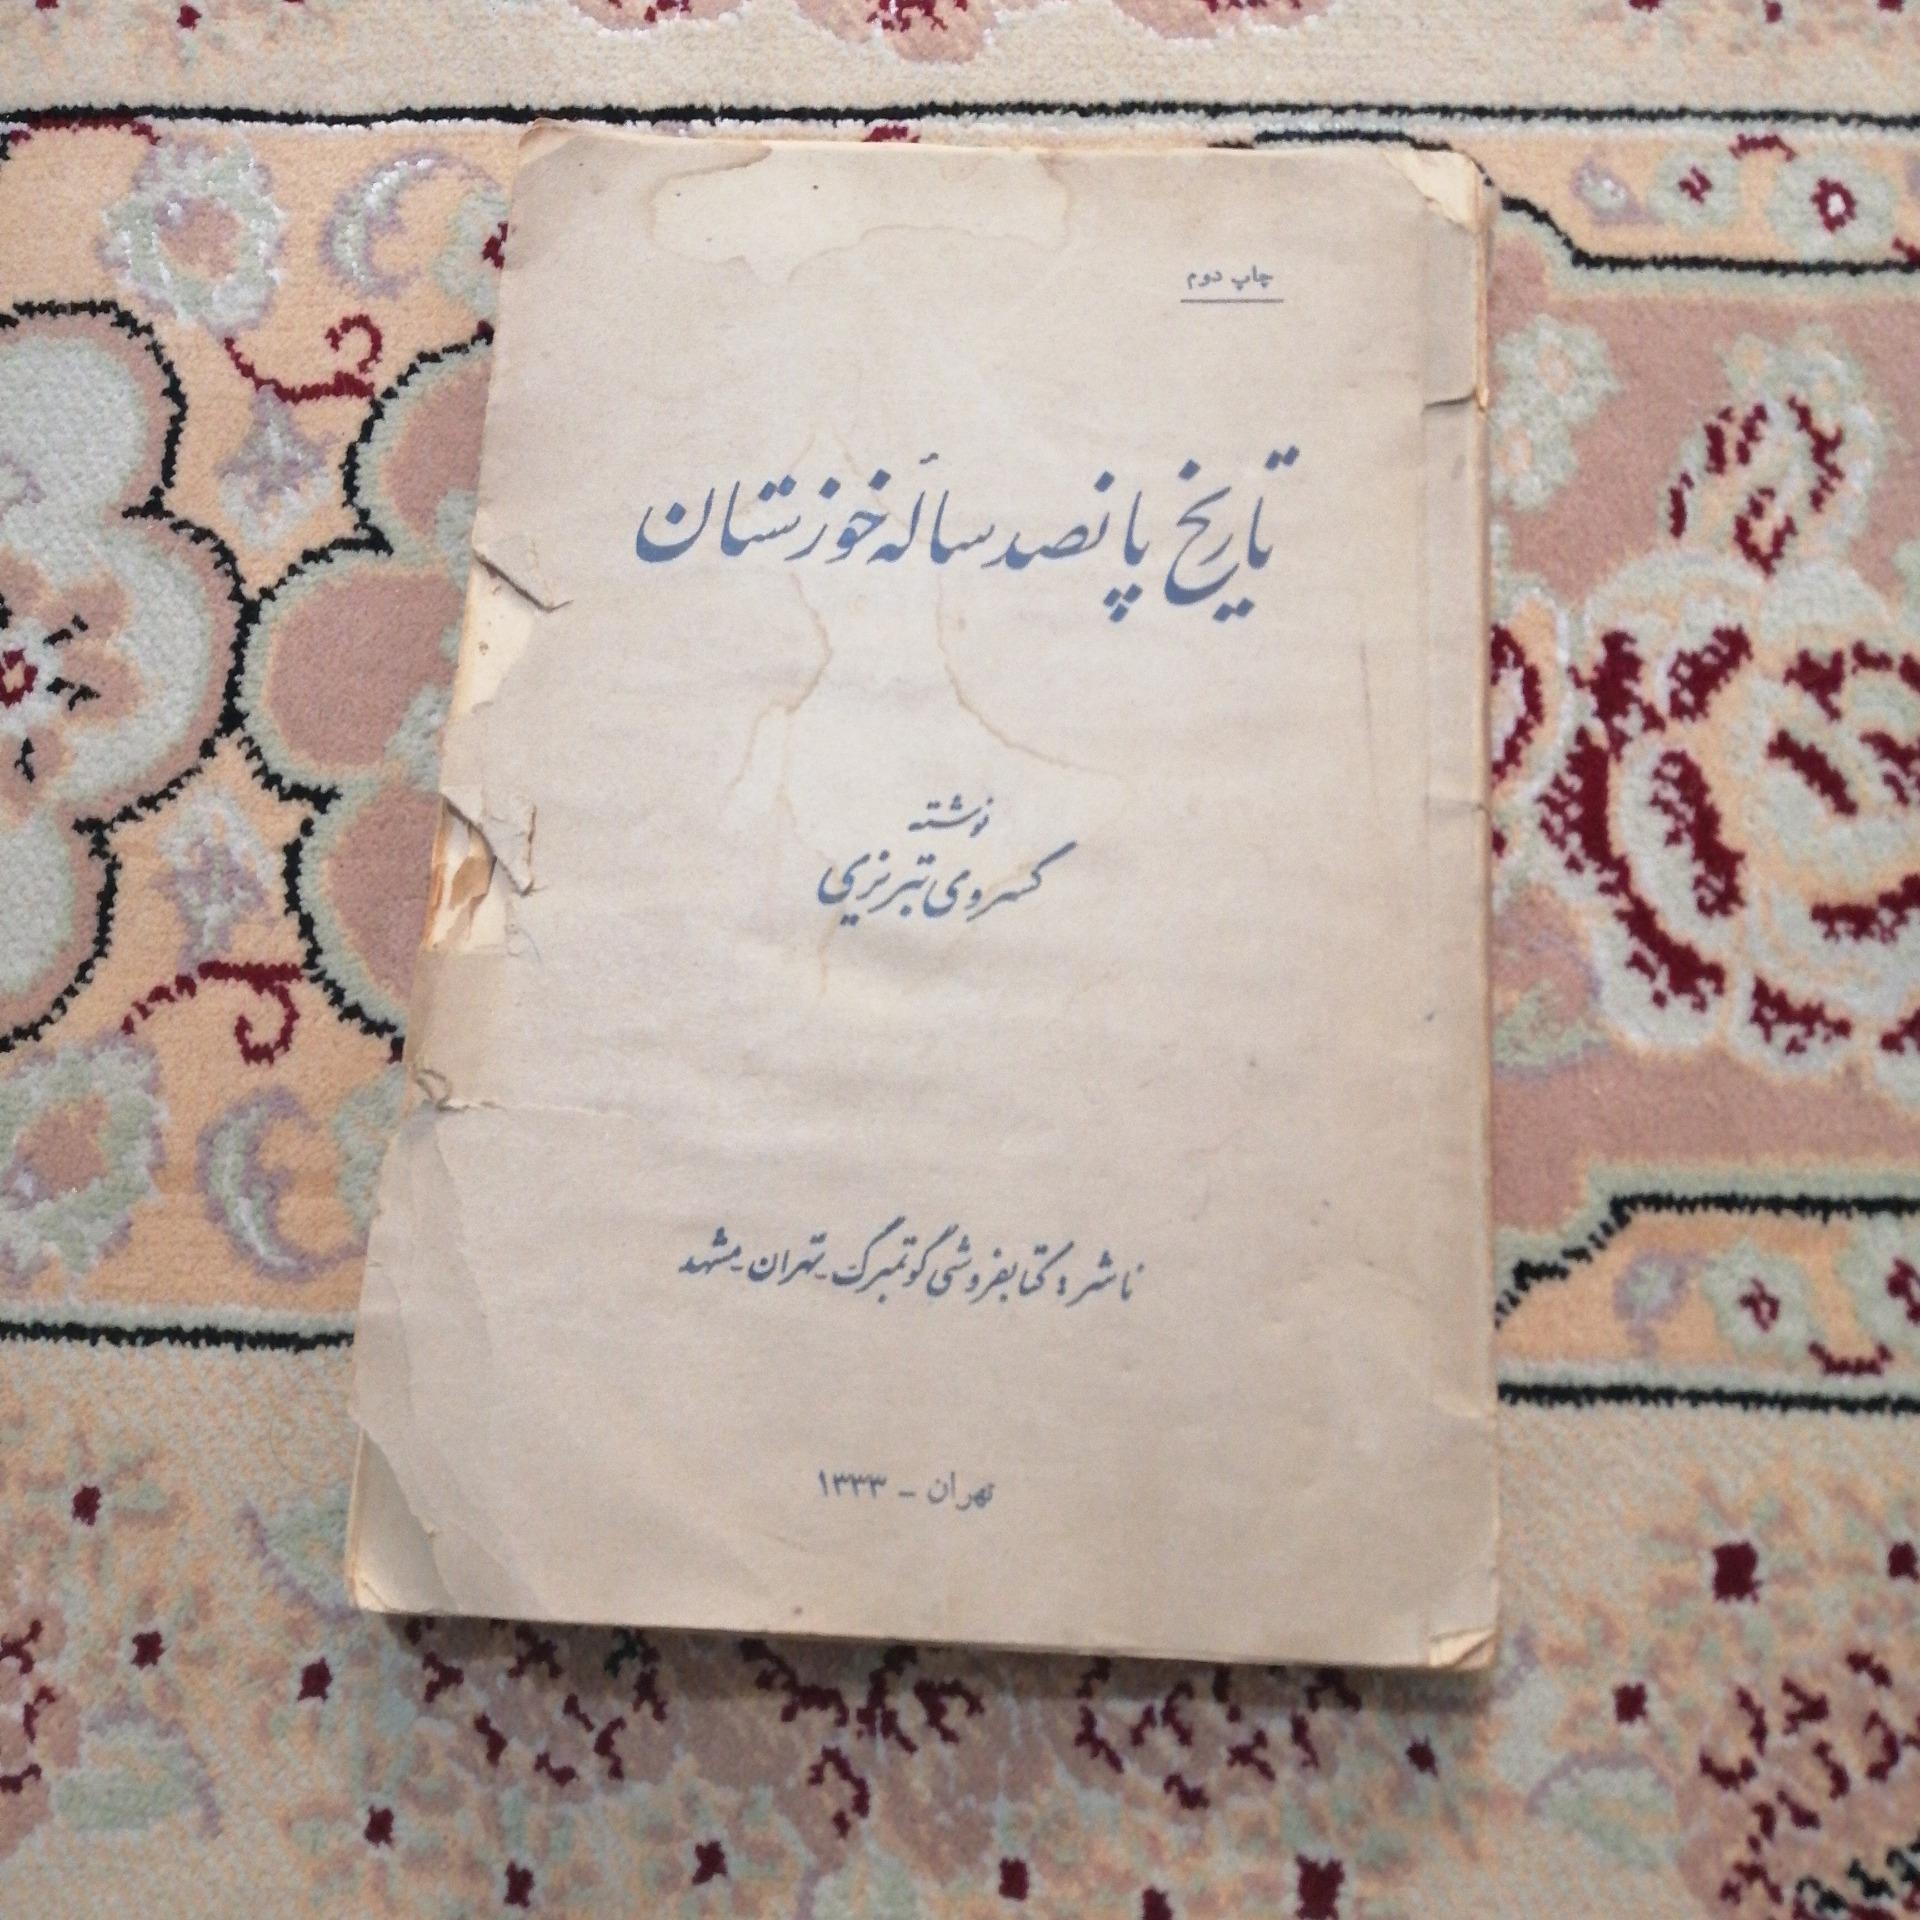 چاپ دوم
تاریخ پانصد سالهٔ خوزستان
نوشته
کسروی تبریزی
ناشر: کتابفروشی گوتمبرگ - تهران - مشهد
تهران - ۱۳۳۳